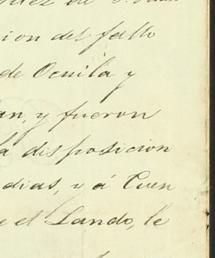 ion del fallo
de Ocuila y
an, y fueron
a disposicion
dias, v á Cuen
e el Lando, le